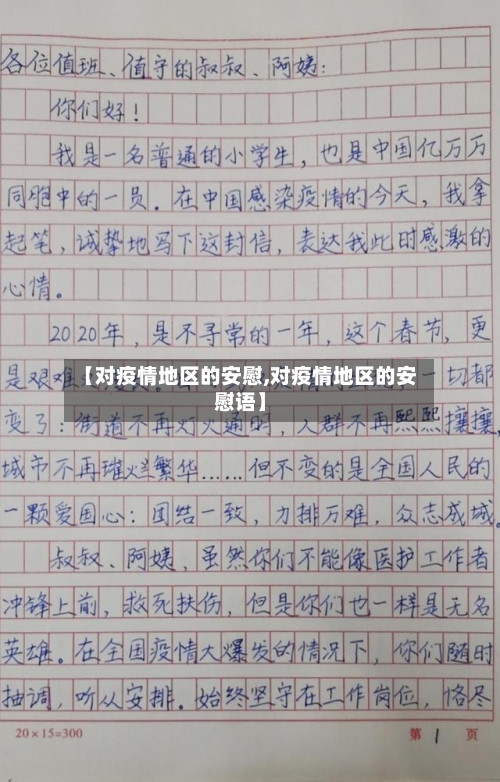 各位值班、值守的叔叔、阿姨：
你们好！
我是一名普通的小学生，也是中国亿万万
同胞中的一员。在中国感染疫情的今天，我拿
起笔，诚挚地写下这封信，表达我此时感激的
心情。
2020年，是不寻常的一年，这个春节，更
是艰难
【对疫情地区的安慰,对疫情地区的安
慰语】
一切都
变了：街道不再灯火通明，人群不再熙熙攘攘，
城市不再璀烂繁华……但不变的是全国人民的
一颗爱国心：团结一致，力排万难，众志成城。
叔叔、阿姨，虽然你们不能像医护工作者
冲锋上前，救死扶伤，但是你们也一样是无名
英雄。在全国疫情大爆发的情况下，你们随时
抽调，听从安排。始终坚守在工作岗位，恪尽
20×15=300 第 1 页